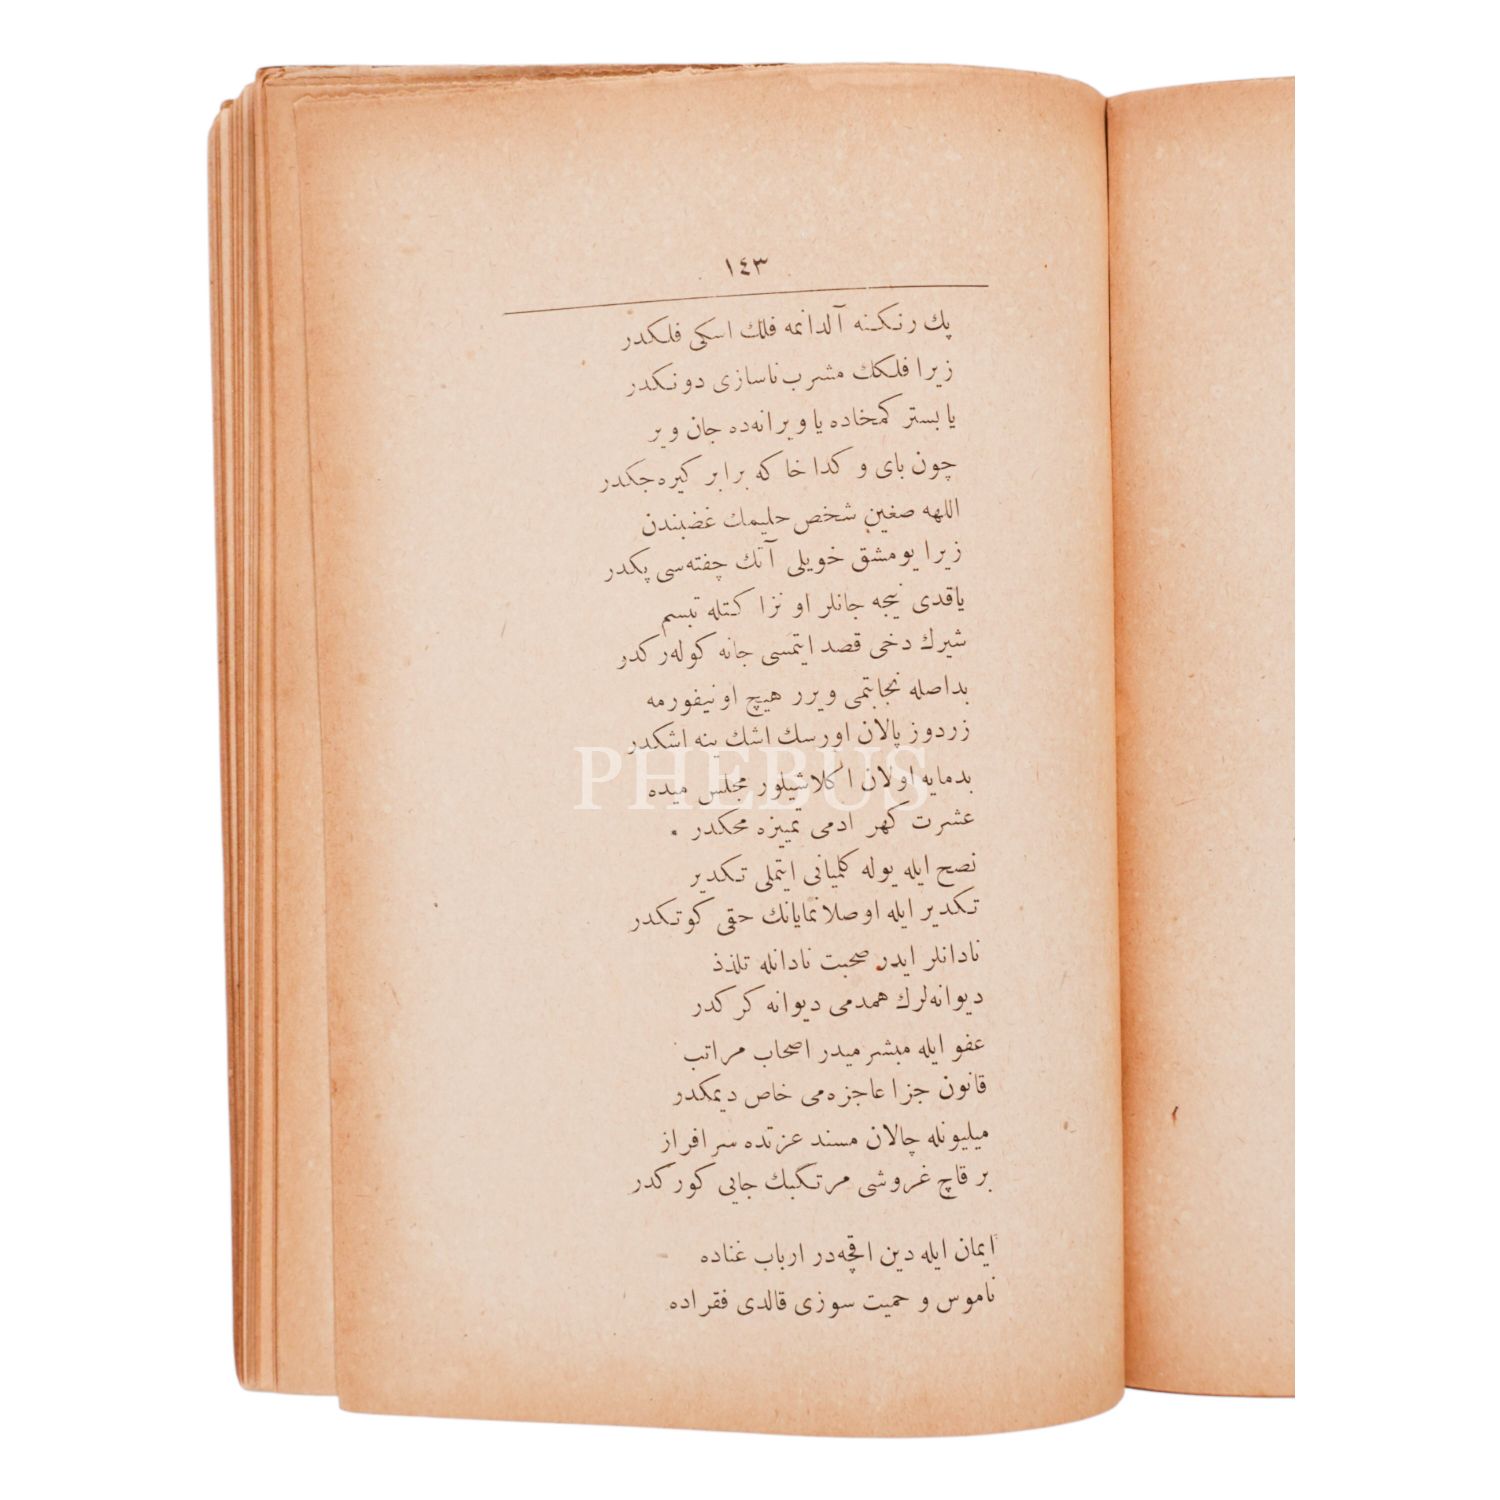 ١٤٣
پك رنكنه آلدانمه فلك اسكی فلكدر
زیرا فلكك مشرب ناسازی دونكدر
یا بستر كمخاده یا ویرانه‌ده جان ویر
چون بای و كدا خاكه برابر كیره‌جكدر
اللهه صغین شخص حلیمك غضبندن
زیرا یومشق خویلی آتك چفته‌سی پكدر
یاقدی نیجه جانلر او نزاكتله تبسم
شیرك دخی قصد ایتمسی جانه كوله‌ركدر
بداصله نجابتمی ویرر هیچ اونیفورمه
زردوز پالان اورسك اشك ینه اشكدر
بدمایه اولان اكلاشیلور مجلس میده
عشرت كهر ادمی تمییزه محكدر .
نصح ایله یوله كلمیانی ایتملی تكدیر
تكدیر ایله اوصلانمایانك حقی كوتكدر
نادانلر ایدر صحبت نادانله تلذذ
دیوانه‌لرك همدمی دیوانه كركدر
عفو ایله مبشر میدر اصحاب مراتب
قانون جزا عاجزه‌می خاص دیمكدر
میلیونله چالان مسند عزتده سرافراز
بر قاچ غروشی مرتكبك جایی كوركدر
ایمان ایله دین اقچه‌در ارباب غناده
ناموس و حمیت سوزی قالدی فقراده
PHEBUS